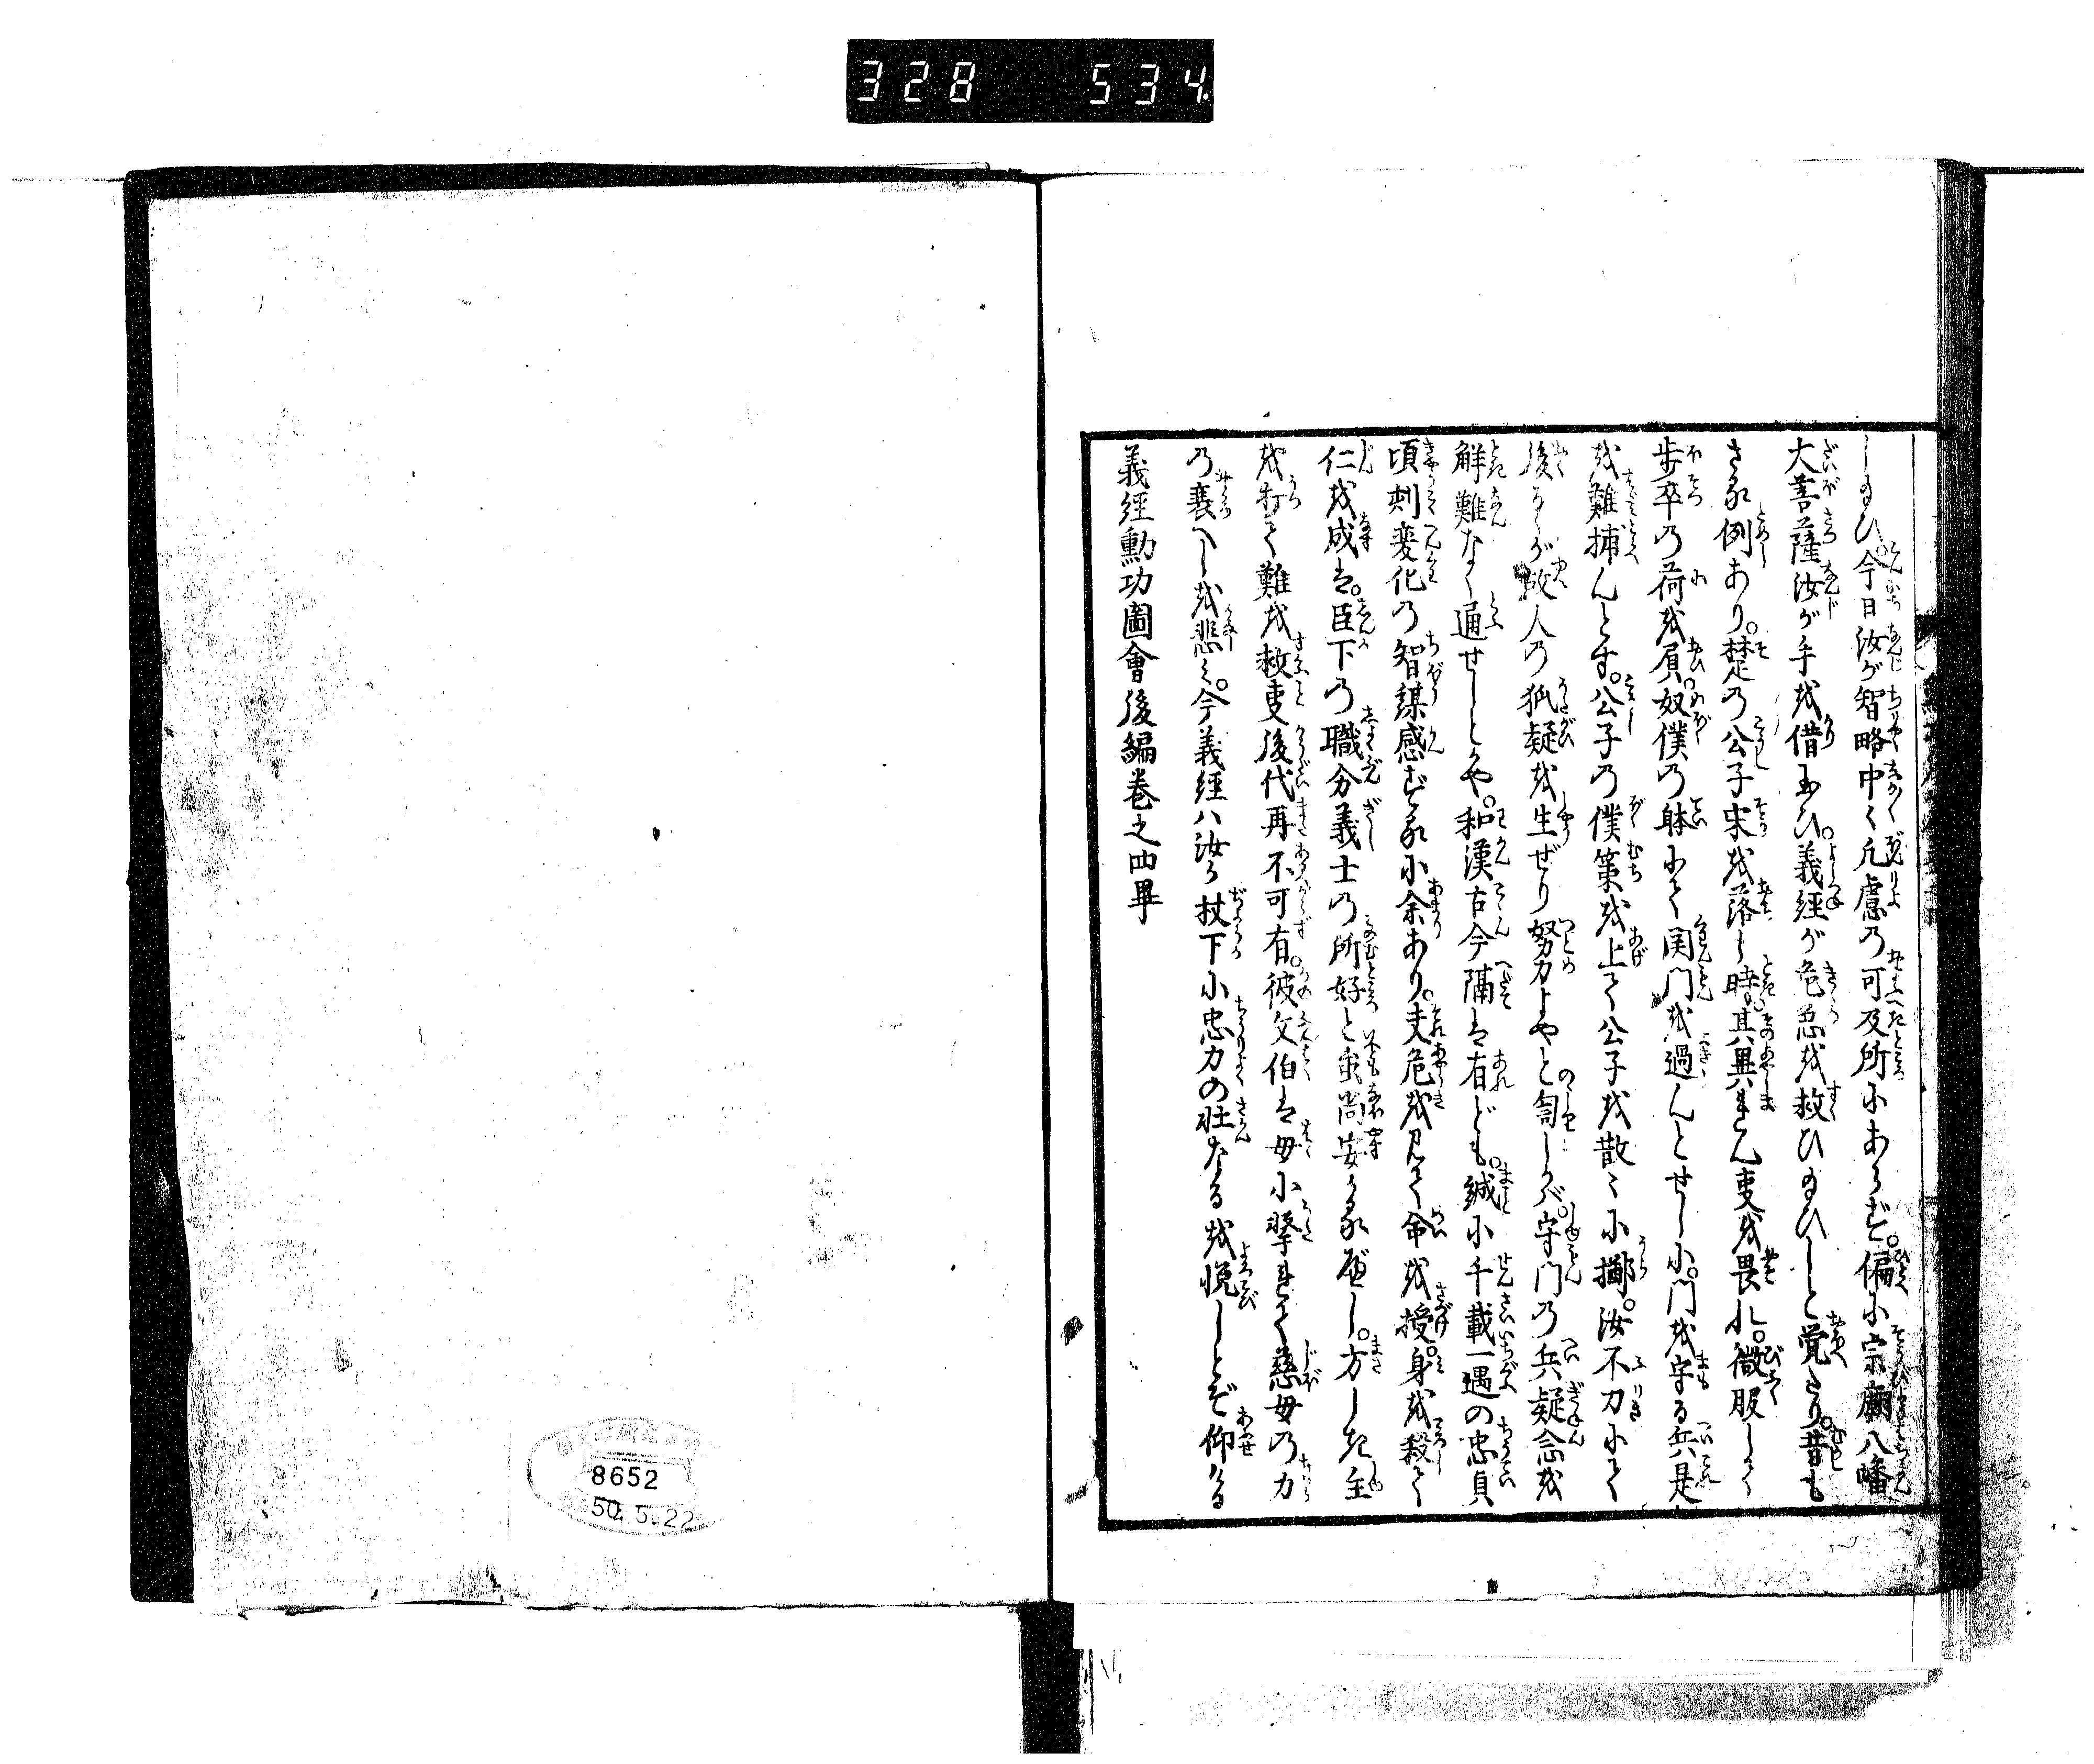 328 534
し給ひ。今日汝が智略中〱凡慮の可及所にあらず。偏に宗廟八幡
大菩薩汝が手を借給ひ。義經が危急を救ひ給ひしと覚たり。昔も
さる例あり。楚の公子宋を落し時。其異まれん叓を畏れ。微服して
歩卒の荷を屓。奴僕の躰にて関門を過んとせしに。門を守る兵是
を難捕んとす。公子の僕箠を上て公子を散〻に擲。汝不力にて
後るゝが故人の狐疑を生ぜり努力よやと訇しかバ。守門の兵疑念を
解難なく通せしとかや。和漢古今隔は有ども。誠に千載一遇の忠貞
頃刻変化の智謀感ずるに余あり。夫危を見て命を授。身を殺て
仁を成は。臣下の職分義士の所好と虽尚安かるべし。方しき主
を打て難を救叓後代再不可有。彼文伯は母に擊れて慈母の力
の衰へしを悲み。今義經ハ汝が杖下に忠力の壮なるを悦しとぞ仰ける
義經勳功圖會後編巻之四畢
8652
50.5.22